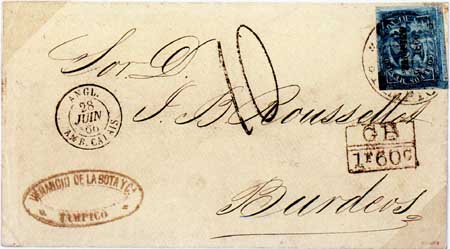 Sor. D.
J. B. Rousselles
Burdeos
10
ANGL.
28
JUIN
66
AMB. CALAIS
GB
1F60c
DE LA BOTA Y Ca
TAMPICO